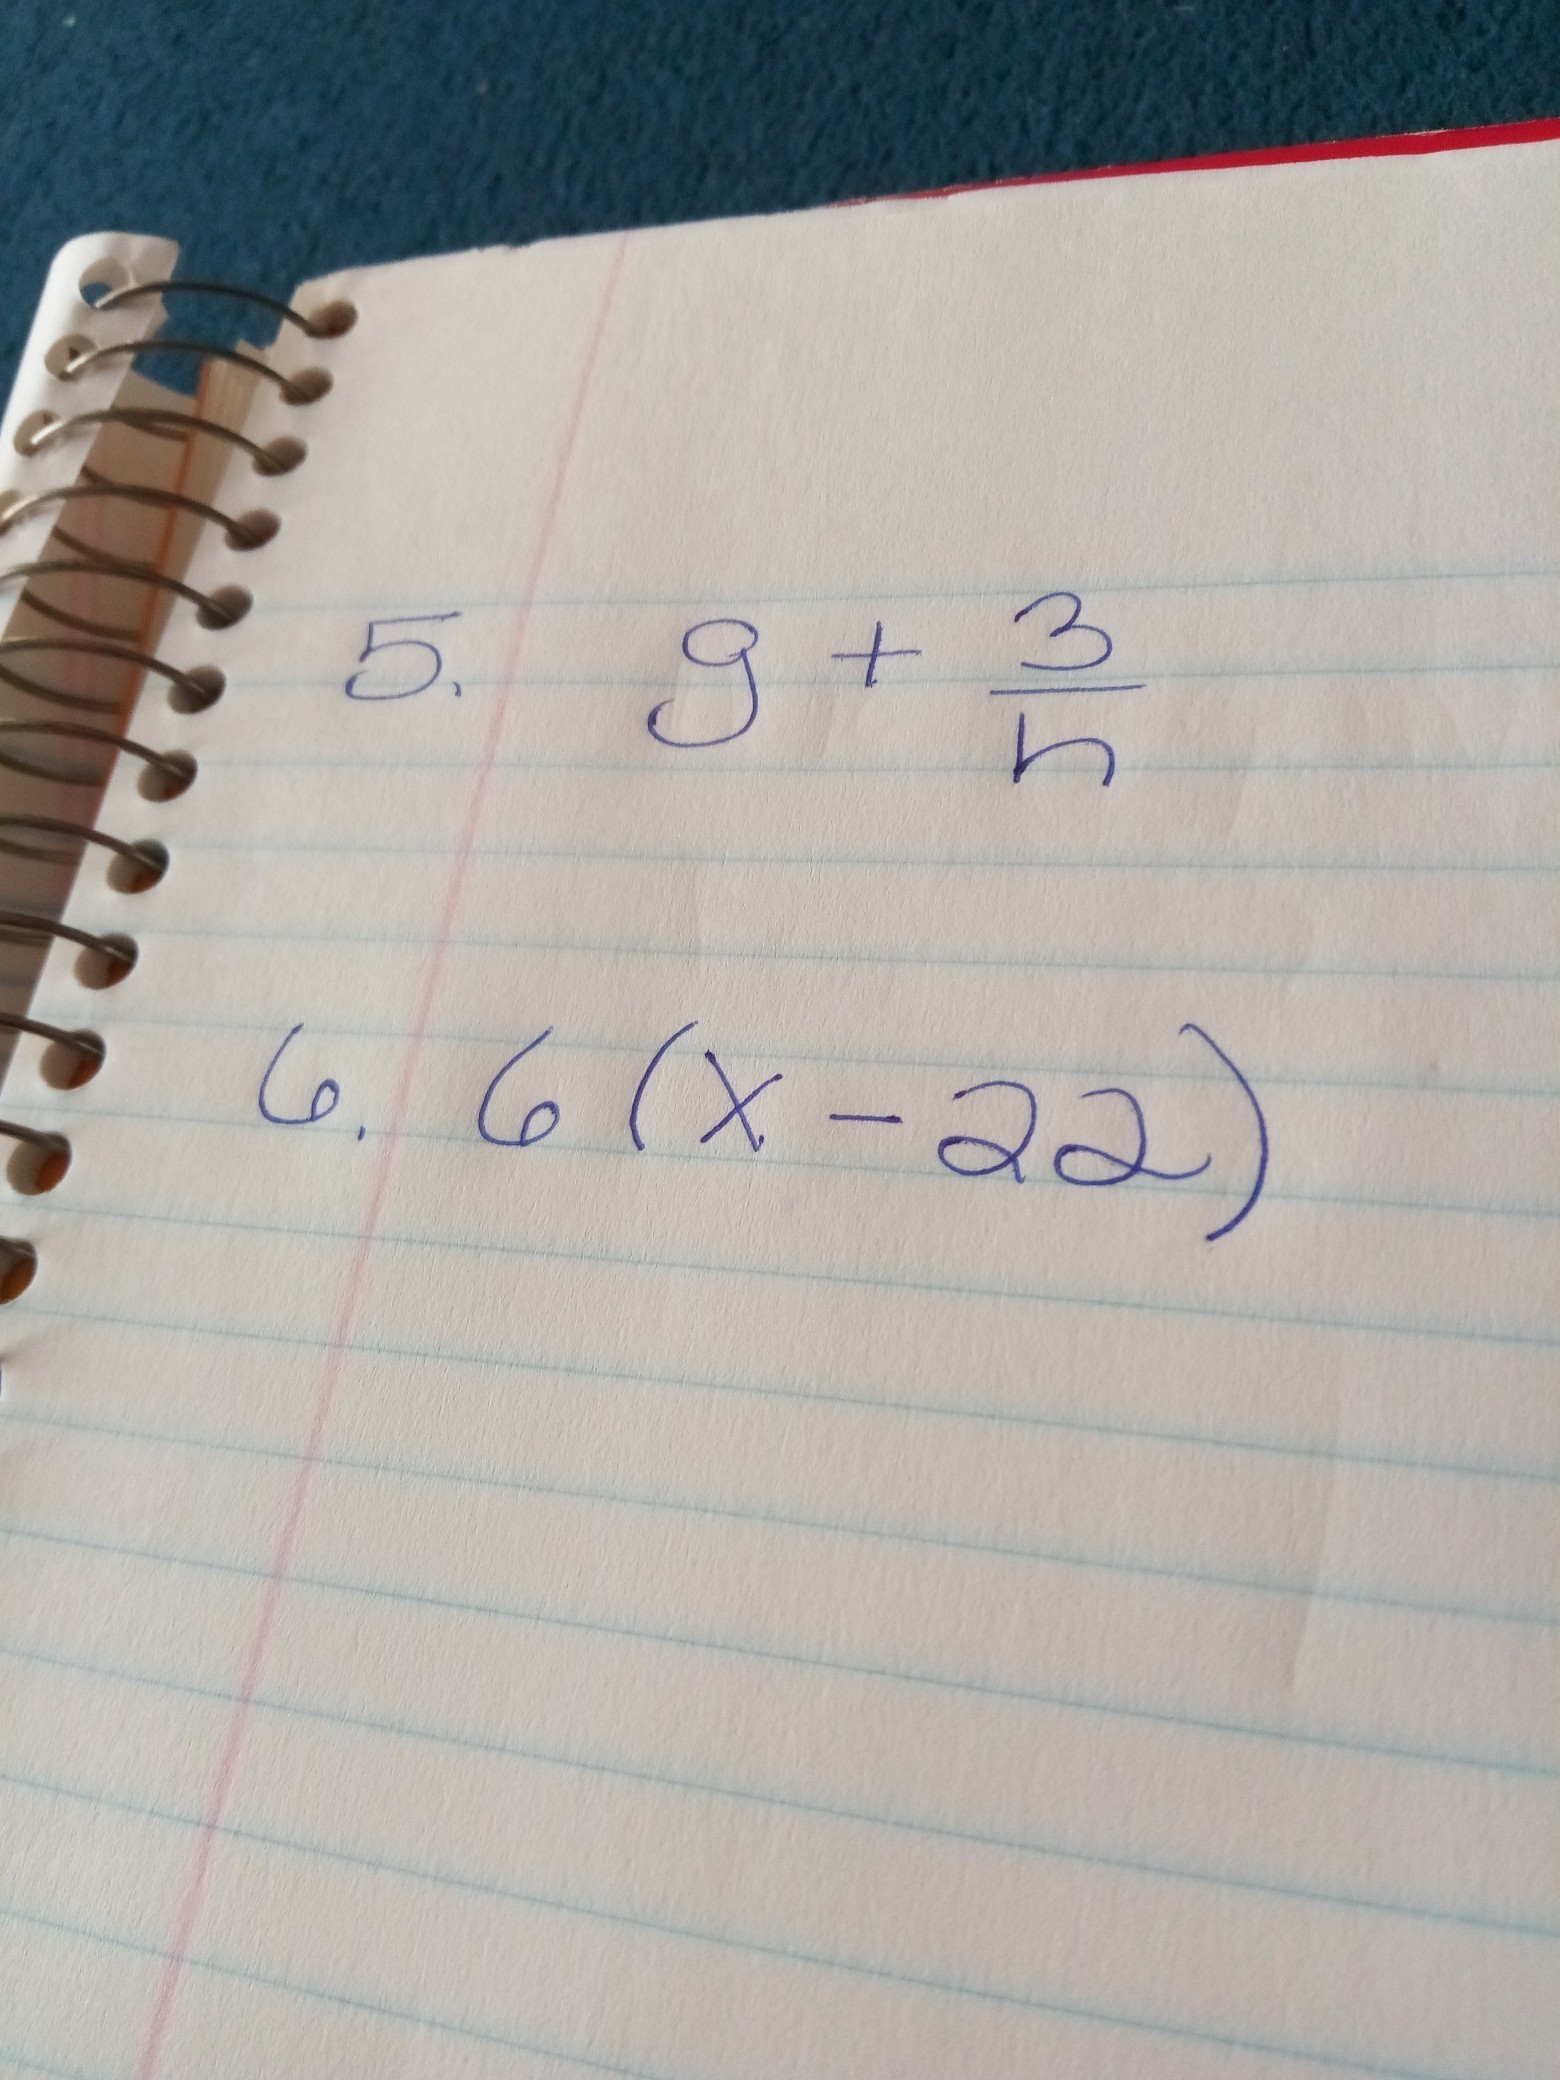 5. g + 3/n
6. 6(x - 22)